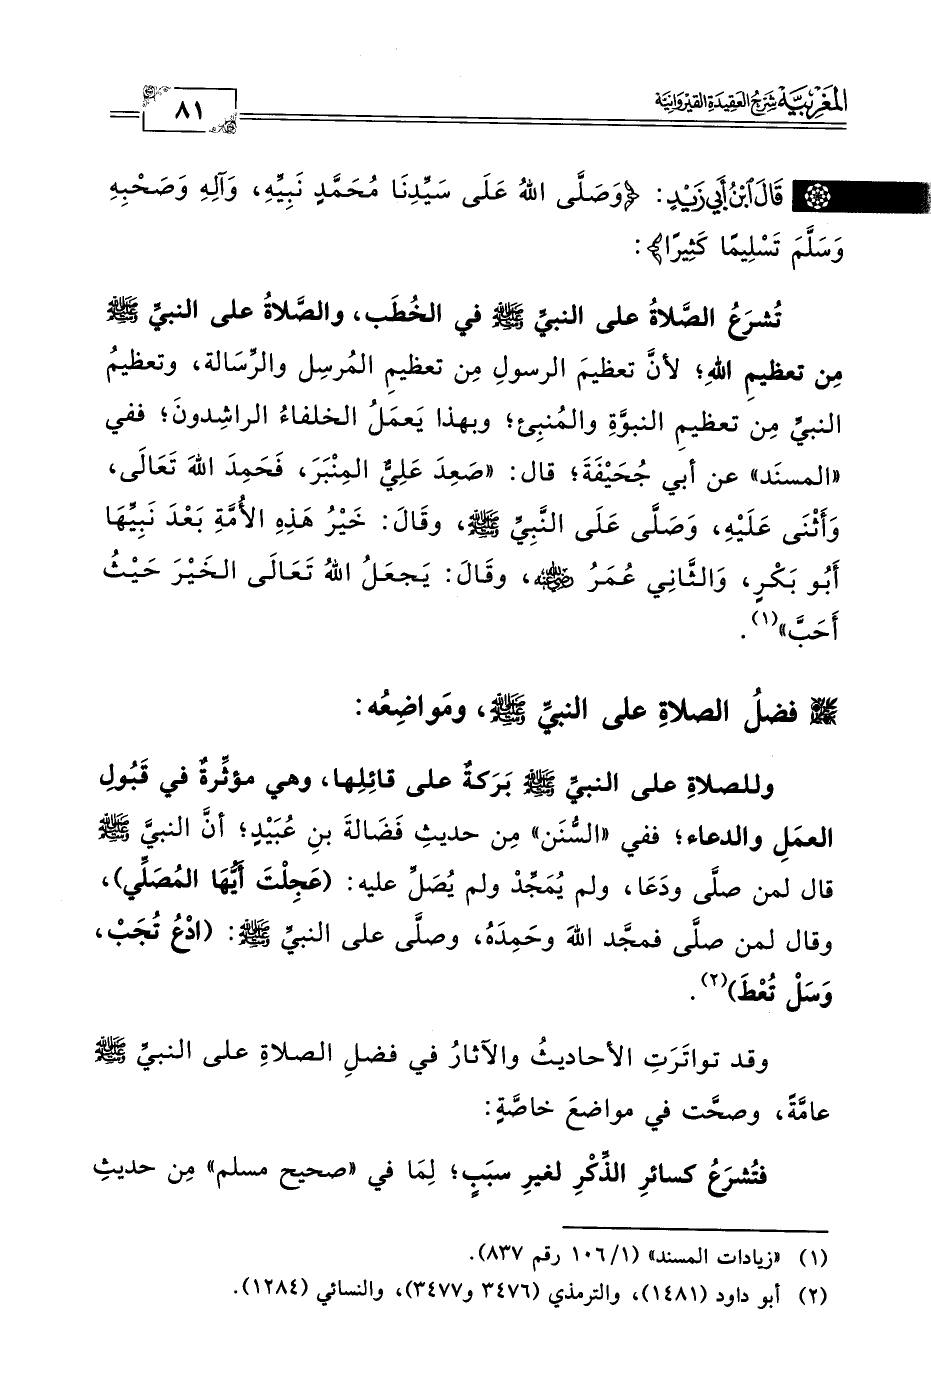 المغربية شرح العقيدة القيروانية
٨١
قَالَ ٱبْنُ أَبِي زَيْدٍ: ﴿وَصَلَّى اللهُ عَلَى سَيِّدِنَا مُحَمَّدٍ نَبِيِّهِ، وَآلِهِ وَصَحْبِهِ
وَسَلَّمَ تَسْلِيمًا كَثِيرًا﴾:
تُشرَعُ الصَّلاةُ على النبيِّ ﷺ في الخُطَب، والصَّلاةُ على النبيِّ ﷺ
مِن تعظيمِ اللهِ؛ لأنَّ تعظيمَ الرسولِ مِن تعظيمِ المُرسِل والرِّسَالة، وتعظيمُ
النبيِّ مِن تعظيمِ النبوَّةِ والمُنبِئ؛ وبهذا يَعمَلُ الخلفاءُ الراشِدونَ؛ ففي
«المسنَد» عن أبي جُحَيْفَةَ؛ قال: «صَعِدَ عَلِيٌّ المِنْبَرَ، فَحَمِدَ اللهَ تَعَالَى،
وَأَثْنَى عَلَيْهِ، وَصَلَّى عَلَى النَّبِيِّ ﷺ، وقَالَ: خَيْرُ هَذِهِ الأُمَّةِ بَعْدَ نَبِيِّهَا
أَبُو بَكْرٍ، وَالثَّانِي عُمَرُ رضي الله عنه، وقَالَ: يَجعَلُ اللهُ تَعَالَى الخَيْرَ حَيْثُ
أَحَبَّ»(١).
فضلُ الصلاةِ على النبيِّ ﷺ، ومَواضِعُه:
وللصلاةِ على النبيِّ ﷺ بَرَكةٌ على قائِلِها، وهي مؤثِّرةٌ في قَبُولِ
العمَلِ والدعاء؛ ففي «السُّنَن» مِن حديثِ فَضَالةَ بنِ عُبَيْدٍ؛ أنَّ النبيَّ ﷺ
قال لمن صلَّى ودَعَا، ولم يُمَجِّدْ ولم يُصَلِّ عليه: (عَجِلْتَ أَيُّهَا المُصَلِّي)،
وقال لمن صلَّى فمجَّد اللهَ وحَمِدَهُ، وصلَّى على النبيِّ ﷺ: (ادْعُ تُجَبْ،
وَسَلْ تُعْطَ)(٢).
وقد تواتَرَتِ الأحاديثُ والآثارُ في فضلِ الصلاةِ على النبيِّ ﷺ
عامَّةً، وصحَّت في مواضعَ خاصَّةٍ:
فتُشرَعُ كسائرِ الذِّكْرِ لغيرِ سبَبٍ؛ لِمَا في «صحيح مسلم» مِن حديثِ
(١) «زيادات المسند» (١٠٦/١ رقم ٨٣٧).
(٢) أبو داود (١٤٨١)، والترمذي (٣٤٧٦ و٣٤٧٧)، والنسائي (١٢٨٤).